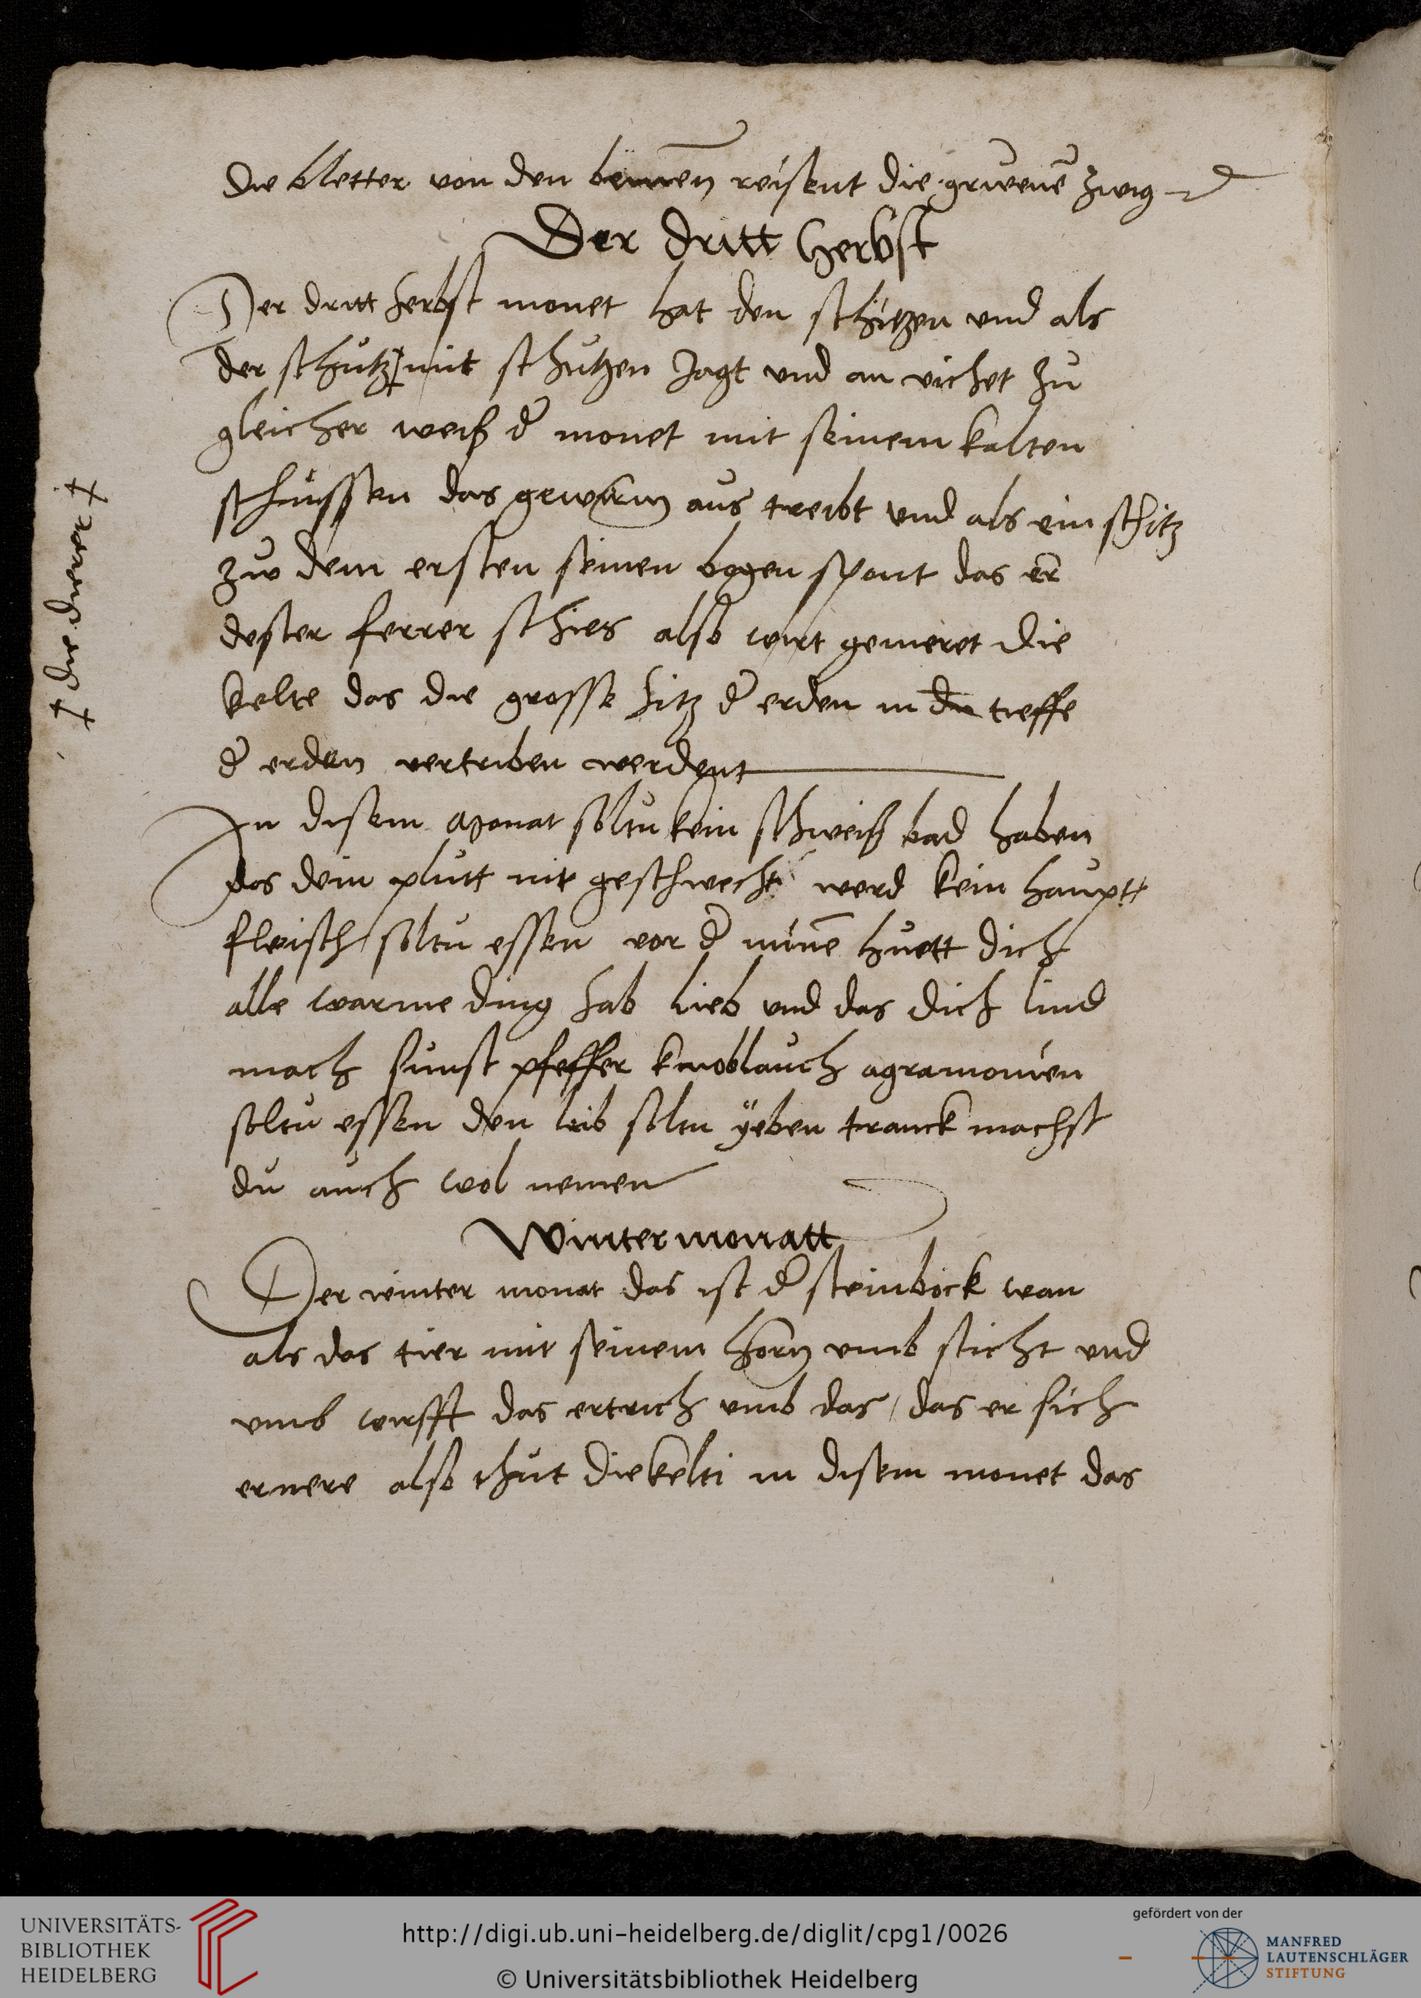 die bletter von den bemen̄ reisent die gruenē zwig
Der dritt herbst
Der dritt herbst monet hat den schitzen vnd als
der schutz ‡ mit schutzen Jagt vnd an vichet zu
gleicher weiß d̄ monet mit seinem kalten
schussen das gewurm aus treibt vnd als ein schitz
zw dem ersten seinen bogen spant das er
dester ferrer schies also wirt gemeret die
kelte das die grosse hitz d̄ erden in die tieffe
d̄ erden vertriben werdent
In disem Monat soltu kein schweiß bad haben
das dein plutt nit geschwecht werd kein haupt
fleisch soltu essen vor d̄ minē huett dich
alle warme ding hab lieb vnd das dich lind
mach sunst pfeffer knoblauch agramonien
soltu essen den leib soltu ÿeben tranck machst
du auch wol nemen
Wintermonatt
Der winter monat das ist d̄ steinbock wan
als das tier mit seinem horn vmb sticht vnd
vmb wirfft das ertrich vmb das / das er sich
ernere also thut die kelti in disem monet das
‡ die dierer ‡
UNIVERSITÄTS-
BIBLIOTHEK
HEIDELBERG
http://digi.ub.uni-heidelberg.de/diglit/cpg1/0026
© Universitätsbibliothek Heidelberg
gefördert von der
MANFRED
LAUTENSCHLÄGER
STIFTUNG